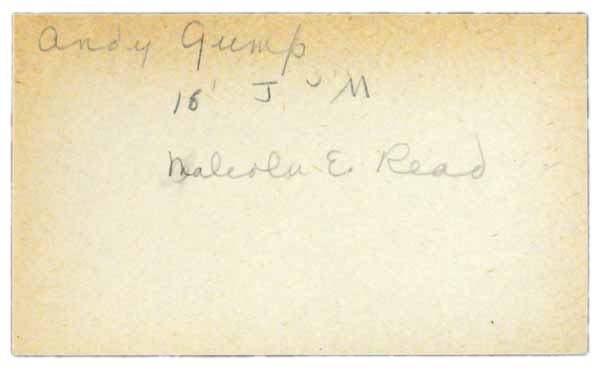 Andy Gump
16' J " M
Malcolm E. Read